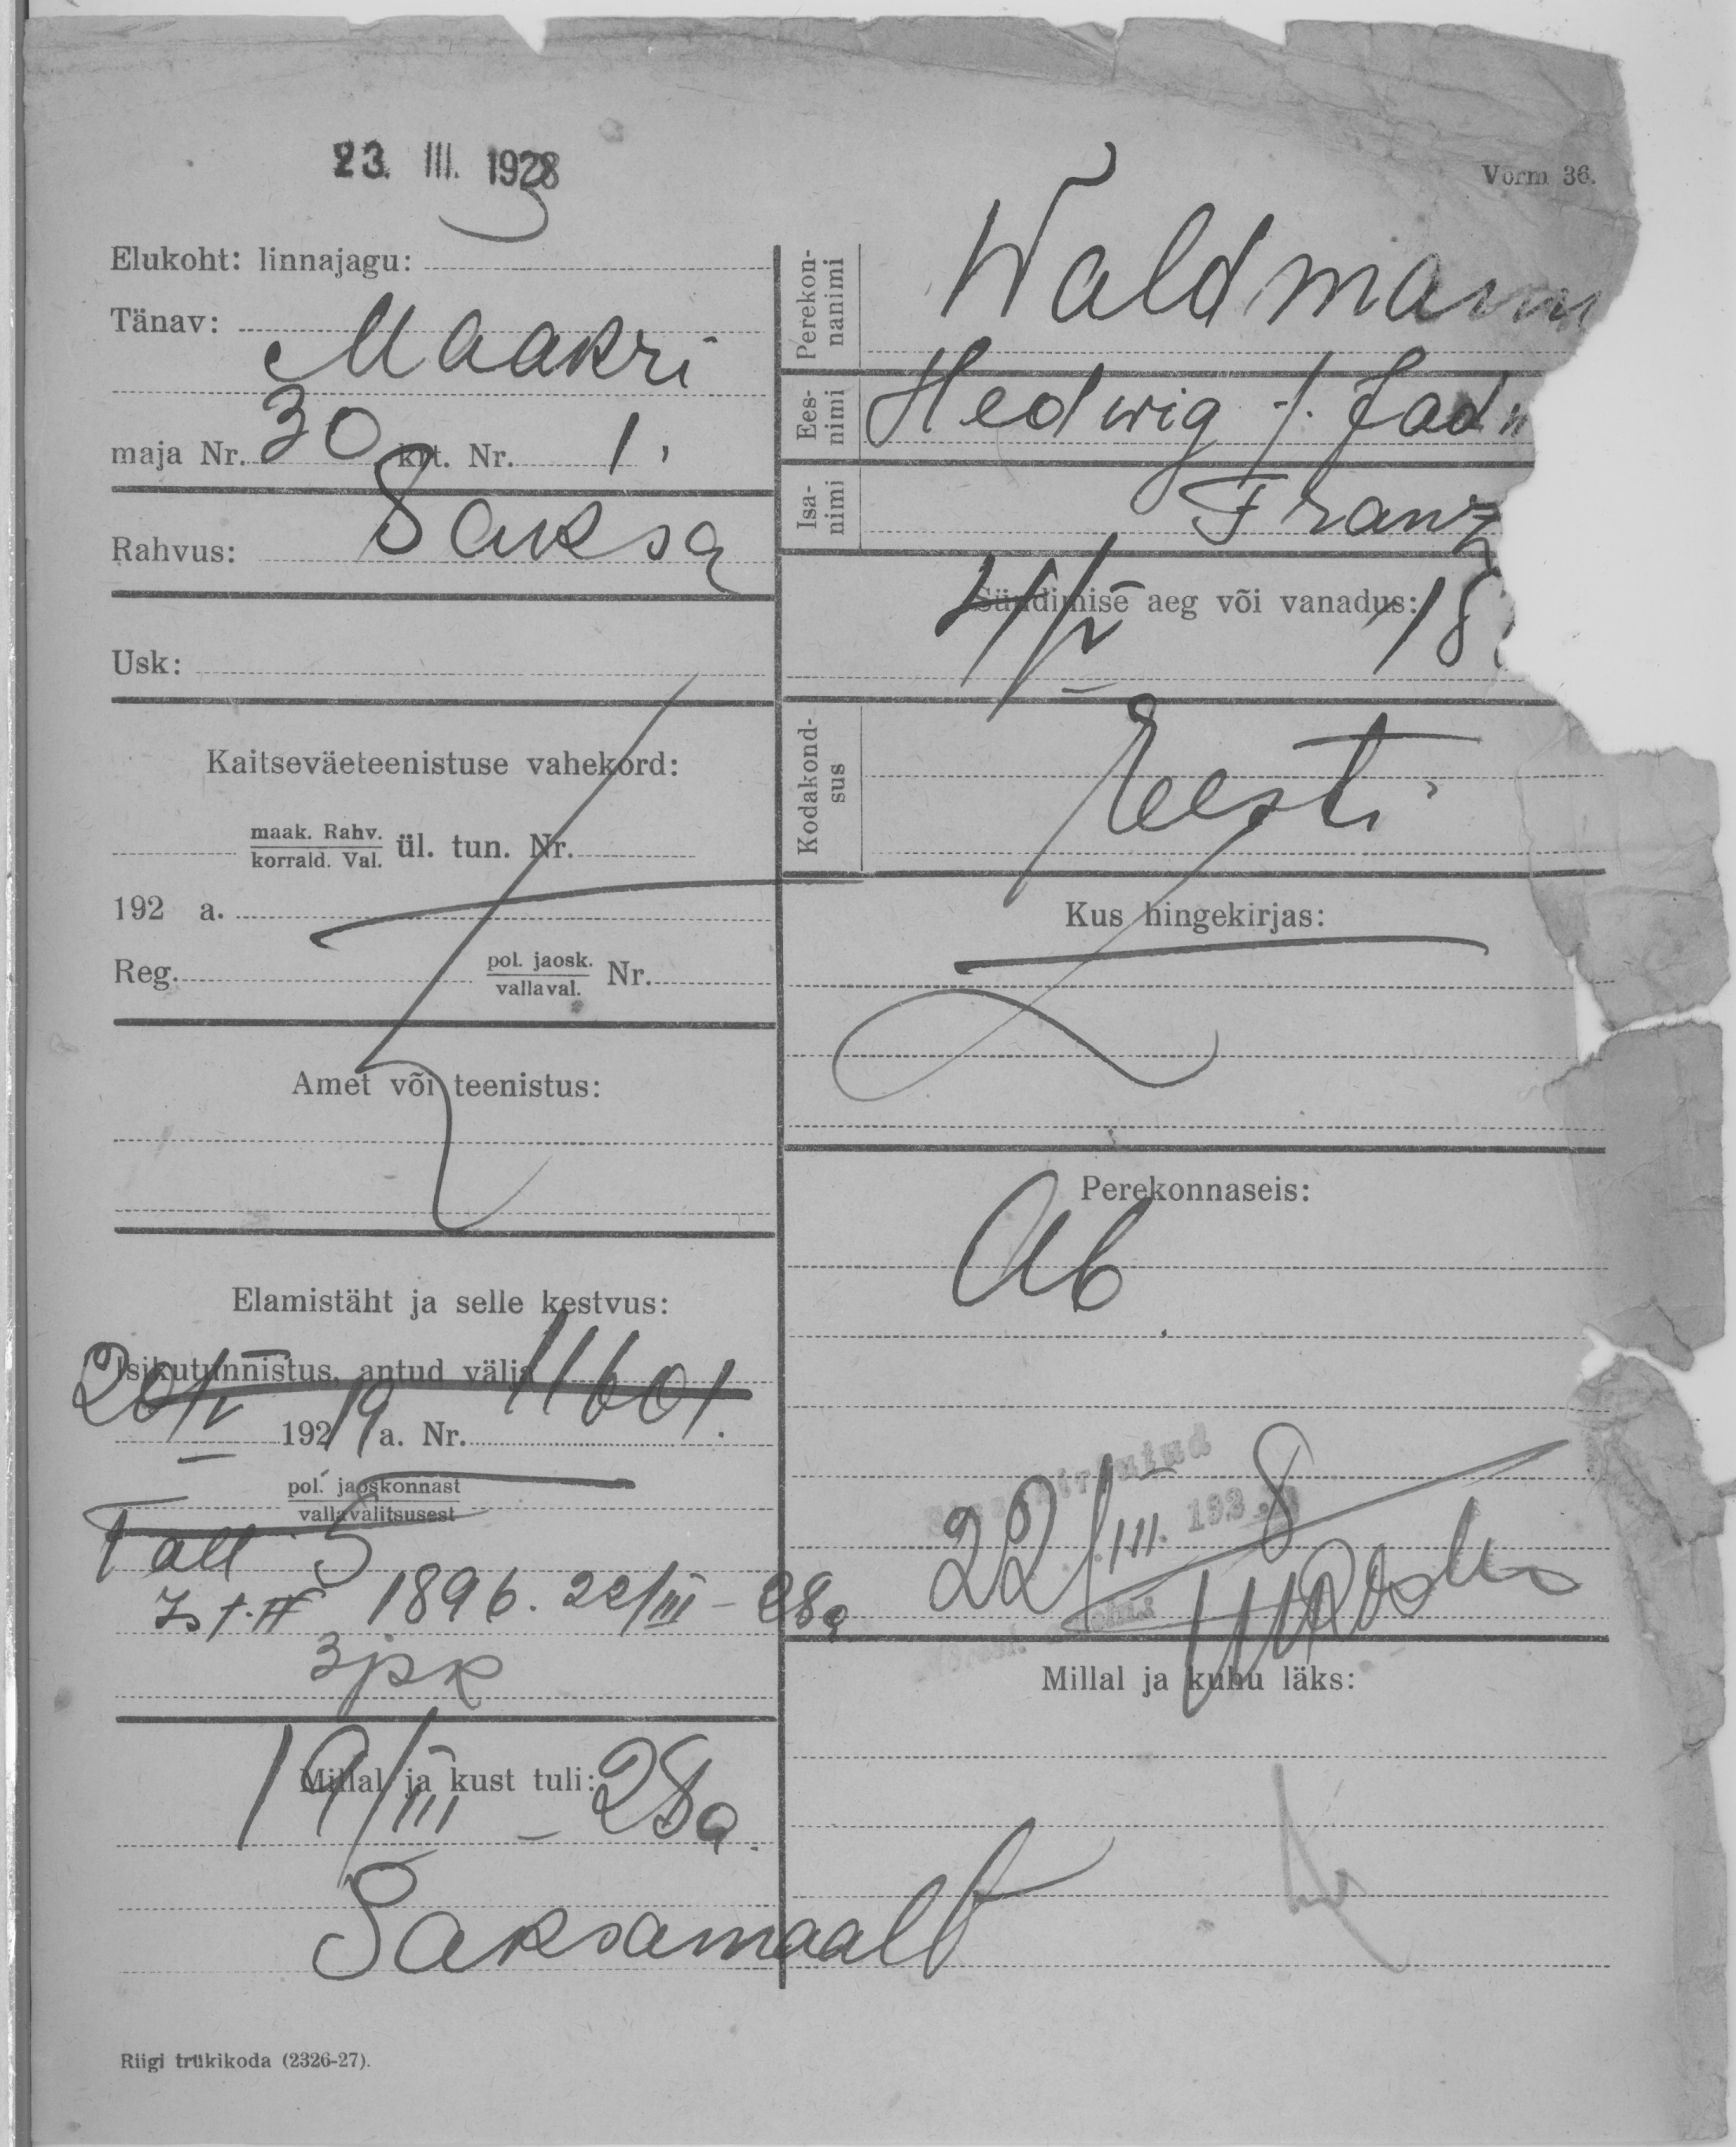 23. III. 1928
Vorm 36.
Elukoht: linnajagu:
Tänav: Maakri
maja Nr. 30 krt. Nr. 1.
Rahvus: Saksa
Usk:
Kaitseväeteenistuse vahekord:
maak. Rahv.
korrald. Val. ül. tun. Nr.
192 a.
Reg. pol. jaosk.
vallaval. Nr.
Amet või teenistus:
Elamistäht ja selle kestvus:
Isikutunnistus, antud välja
20/V 1919 a. Nr. 11601.
pol. jaoskonnast
vallavalitsusest
Tall 5
1896. 22/III - 28a
3 jsk
Millal ja kust tuli:
19/III - 28a.
Saksamaalt
Riigi trükikoda (2326-27).
Perekon-
nanimi Waldmann
Ees-
nimi Hedwig
Isa-
nimi Franz
Sündimise aeg või vanadus:
18
Kodakond-
sus Eesti
Kus hingekirjas:
Perekonnaseis:
Ab.
22/III 8
Millal ja kuhu läks: